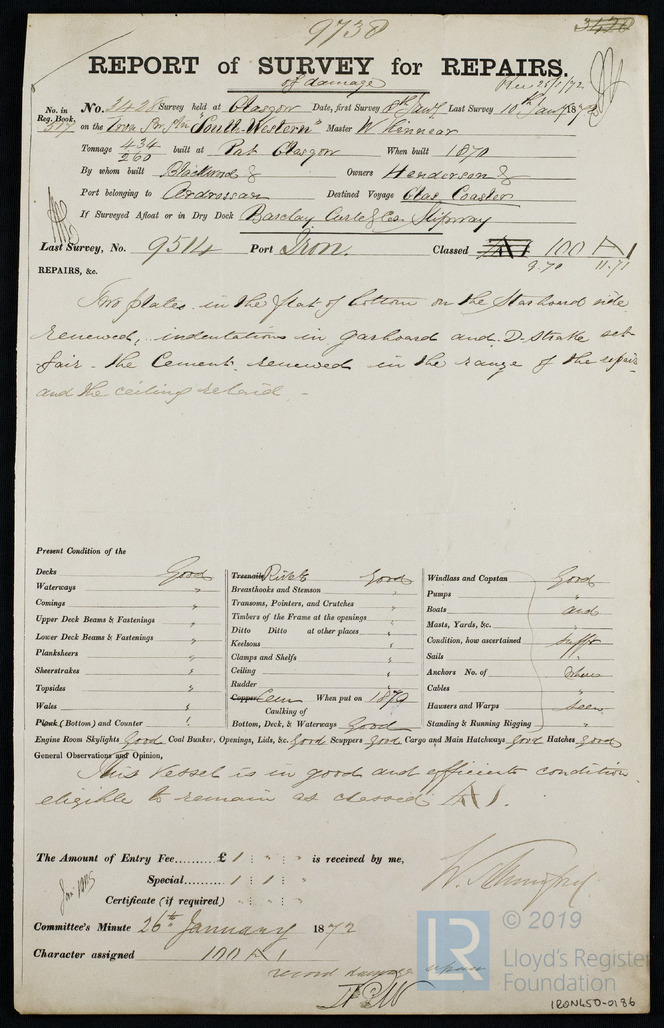 9738
3420
REPORT of SURVEY for REPAIRS.
of damage
25/1/72
No. in Reg. Book, 517
No. 2428 Survey held at Glasgow Date, first Survey 8th Jany Last Survey 10th Jany 1872
on the Iron Sr "South Western" Master W Kinnear
Tonnage 434/260 built at Port Glasgow When built 1870
By whom built Blackwood & Owners Henderson &
Port belonging to Ardrossan Destined Voyage Glas Coaster
If Surveyed Afloat or in Dry Dock Barclay Curle & Co Slipway
Last Survey, No. 9514 Port Iron. Classed A1 100 A1
9.70 11.71
REPAIRS, &c.
Two plates in the flat of bottom on the Starboard side
renewed, indentations in garboard and D. Strake set
fair - the Cement renewed in the range of the repair
and the ceiling relaid -
Present Condition of the
Decks Good
Waterways "
Comings "
Upper Deck Beams & Fastenings "
Lower Deck Beams & Fastenings "
Planksheers "
Sheerstrakes "
Topsides "
Wales "
Plank (Bottom) and Counter "
Treenails Rivets Good
Breasthooks and Stemson "
Transoms, Pointers, and Crutches "
Timbers of the Frame at the openings "
Ditto Ditto at other places "
Keelsons "
Clamps and Shelfs "
Ceiling "
Rudder "
Copper Cem When put on 1870
Caulking of
Bottom, Deck, & Waterways Good
Windlass and Capstan Good
Pumps "
Boats and
Masts, Yards, &c. "
Condition, how ascertained sufft
Sails "
Anchors No. of when
Cables "
Hawsers and Warps seen
Standing & Running Rigging "
Engine Room Skylights Good Coal Bunker, Openings, Lids, &c. Good Scuppers Good Cargo and Main Hatchways Good Hatches Good
General Observations and Opinion,
This Vessel is in good and efficient condition
eligible to remain as classed A1.
The Amount of Entry Fee......... £ 1 : " : " is received by me,
Special......... 1 : 1 : "
Certificate (if required) " : " : "
Committee's Minute 26th January 1872
Character assigned 100 A1
record damage
© 2019
LR
Lloyd's Register
Foundation
IRON450-0186